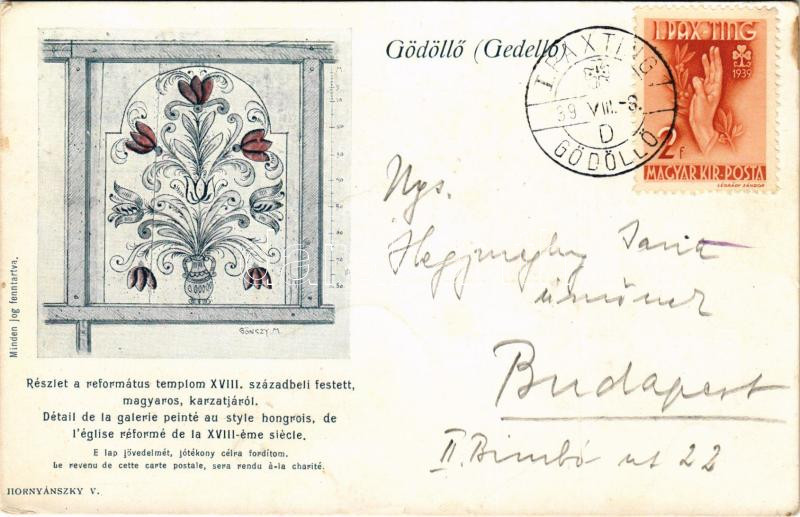 Gödöllő (Gedellő)
I. PAX-TING
1939
2f
MAGYAR KIR. POSTA
LÉGRÁDY SÁNDOR
I. PAX TING
39 VIII.-8.
D
GÖDÖLLŐ
GÖNCZY M.
Minden jog fenntartva.
Részlet a református templom XVIII. századbeli festett,
magyaros, karzatjáról.
Détail de la galerie peinté au style hongrois, de
l'église réformé de la XVIII-ème siècle.
E lap jövedelmét, jótékony célra fordítom.
Le revenu de cette carte postale, sera rendu à-la charité.
HORNYÁNSZKY V.
Ngs.
Budapest
II. Bimbó ut 22